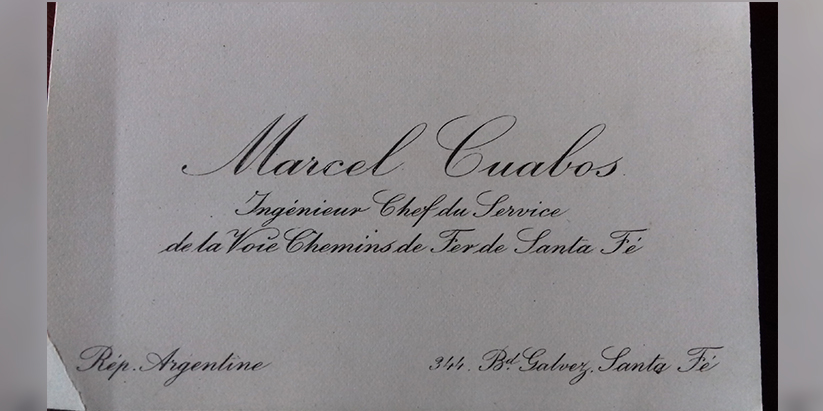 Marcel Cuabos
Ingénieur Chef du Service
de la Voie Chemins de Fer de Santa Fé
Rép. Argentine
344. Bd. Galvez. Santa Fé